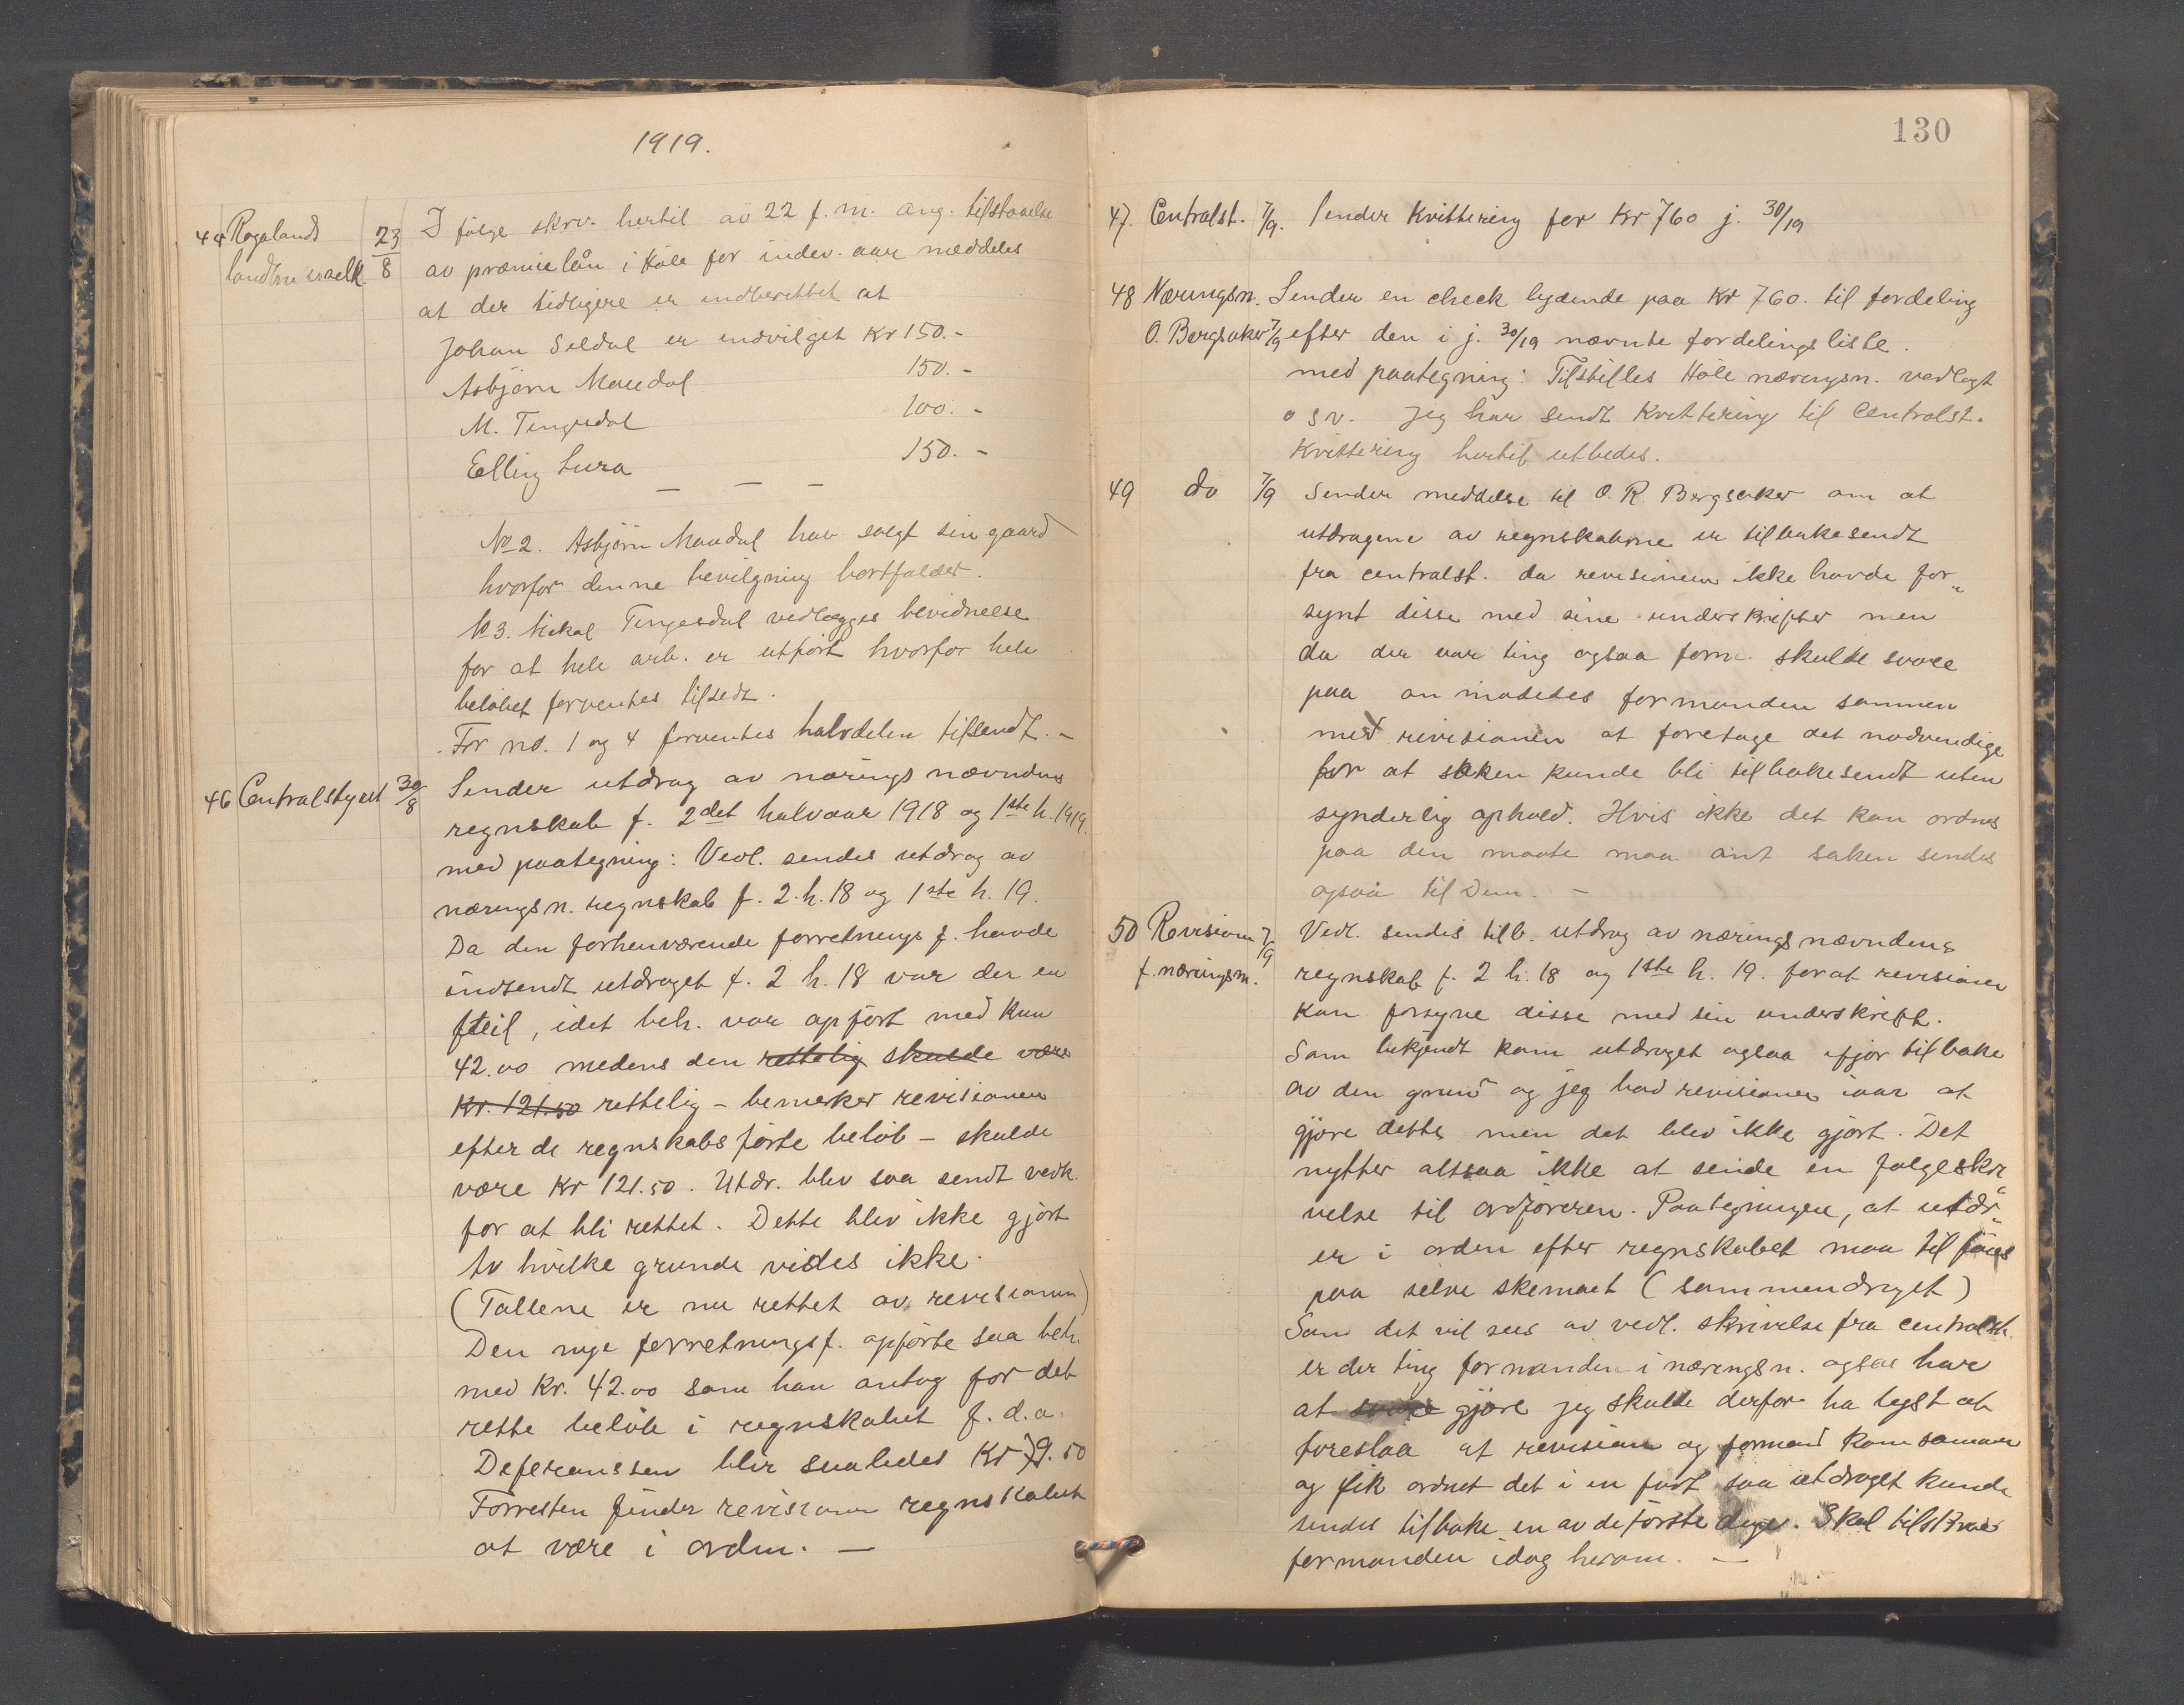 1919.
44 Rogalands 23/8 I følge skriv. hertil av 22 f. m. ang. tilstaaelse
landbr. selsk. av præmielån i Høle for indev. aar meddeles
at der tidligere er indberettet at
Johan Seldal er indvilget Kr 150.-
Asbjørn Maudal 150.-
M. Tengesdal 100.-
Elling Lura 150.-
No 2. Asbjørn Maudal har solgt sin gaard
hvorfor denne bevilgning bortfalder.
No 3. Mikal Tengesdal vedlægges bevidnelse
for at hele arb. er utført hvorfor hele
beløbet forventes tilsedt.
For no. 1 og 4 forventes halvdelen tilsendt. -
46 Centralstyret 30/8 Sender utdrag av næringsnævndens
regnskab f. 2det halvaar 1918 og 1ste h. 1919.
med paategning: Vedl. sendes utdrag av
næringsn. regnskab f. 2. h. 18 og 1ste h. 19.
Da den forhenværende forretnings f. havde
indsendt utdraget f. 2 h. 18 var der en
feil, idet beh. var opført med kun
42.00 medens den rettelig skulde være
Kr. 121.50 rettelig - bemerker revisionen
efter de regnskabsførte beløb - skulde
være Kr 121.50. Utdr. blev saa sendt vedk.
for at bli rettet. Dette blev ikke gjort
Av hvilke grunde vides ikke.
(Tallene er nu rettet av revisionen)
Den nye forretningsf. opførte saa beh.
med Kr. 42.00 som han antog for det
rette beløb i regnskabet f. d. a.
Deferanssen blir saaledes Kr 79.50
Forresten finder revisionen regnskabet
at være i orden. -
130
47. Centralst. 7/9. Sender Kvittering for Kr 760 j. 30/19
48 Næringsn. Sender en check lydende paa Kr 760. til fordeling
O. Bergsaker 7/9 efter den i j. 30/19 nævnte fordelingsliste.
med paategning: Tilstilles Høle næringsn. vedlagt
o s v. Jeg har sendt Kvittering til Centralst.
Kvittering hertil utbedes.
49 do 7/9 Sender meddelse til O. R. Bergsaker om at
utdragene av regnskabene er tilbakesendt
fra centralst. da revisionen ikke havde for„
synt disse med sine underskrifter men
da der var ting ogsaa form. skulde svare
paa anmodedes formanden sammen
med revisionen at foretage det nødvendige
for at saken kunde bli tilbakesendt uten
synderlig ophold. Hvis ikke det kan ordnes
paa den maate maa ant saken sendes
ogsaa til Dem. -
50 Revisionen 7/9 Vedl. sendes tilb. utdrag av næringsnævndens
f. næringsn. regnskab f. 2 h. 18 og 1ste h. 19. for at revisionen
kan forsyne disse med sin underskrift.
Som bekjendt kom utdraget ogsaa ifjor tilbake
av den grund og jeg bad revisionen iaar at
gjøre dette men det blev ikke gjort. Det
nytter altsaa ikke at sende en følgeskri„
velse til ordføreren. Paategningen, at utdr.
er i orden efter regnskabet maa tilføies
paa selve skemaet (sammendraget)
Som det vil sees av vedl. skrivelse fra centralst.
er der ting formanden i næringsn. ogsaa har
at svare gjøre jeg skulde derfor ha lyst at
foreslaa at revision og formand kom sammen
og fik ordnet det i en fart saa utdraget kunde
sendes tilbake en av de første dage. Skal tilskrive
formanden idag herom. -